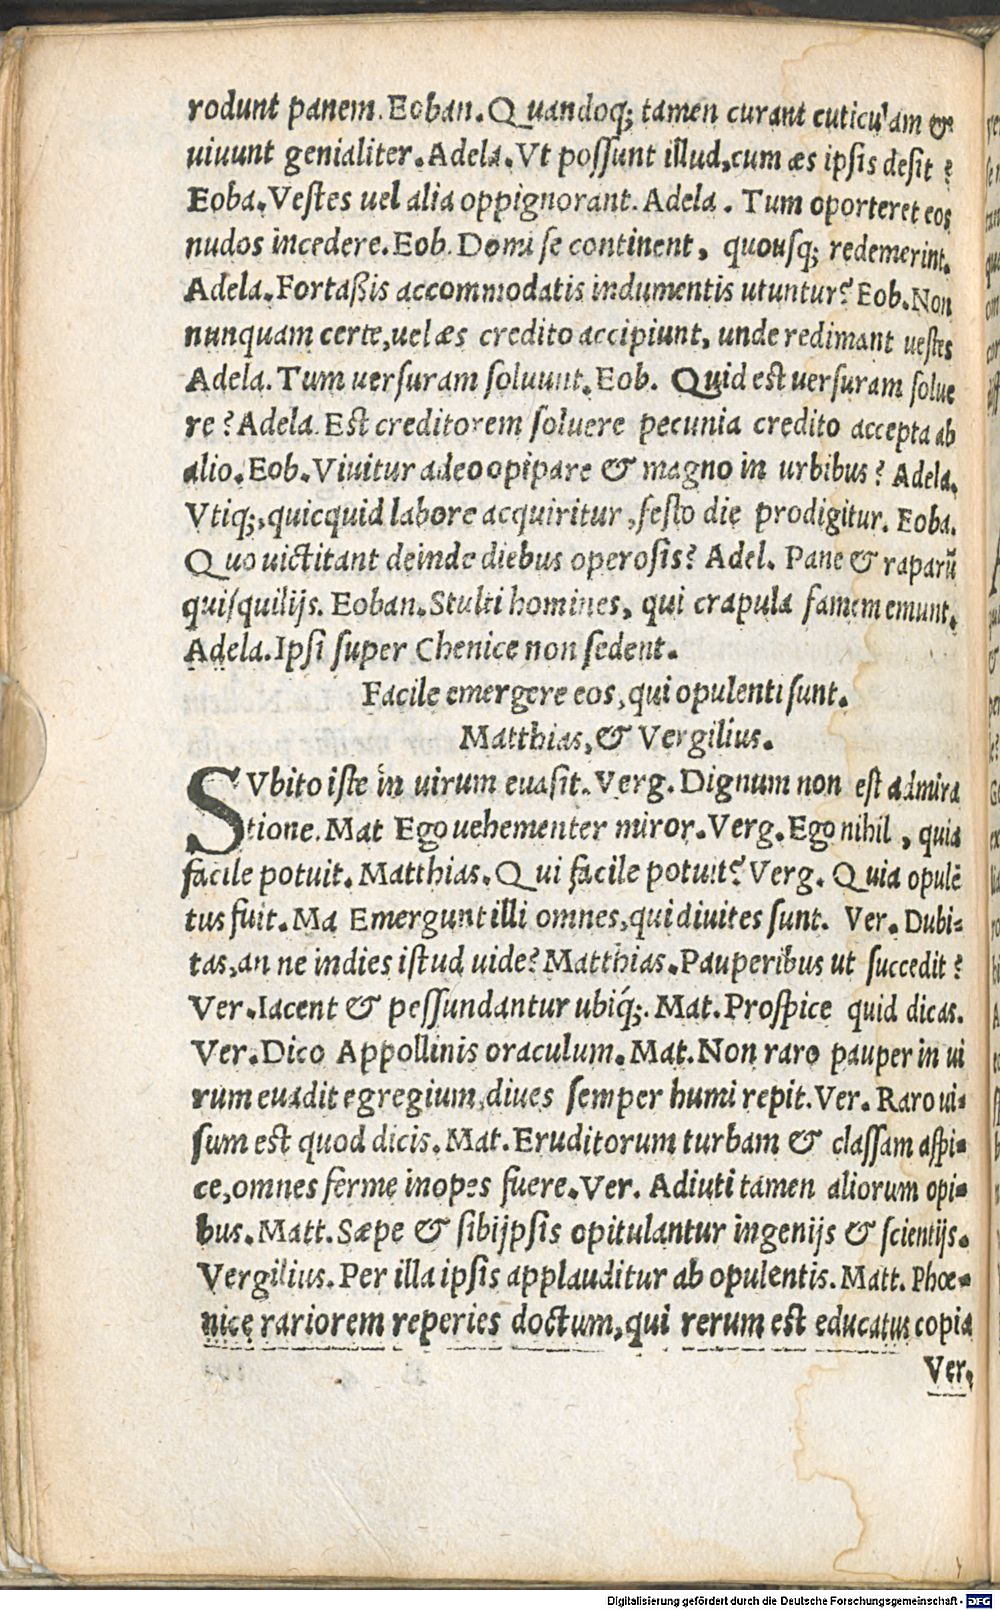 rodunt panem. Eoban. Quandoq; tamen curant cuticulam &
uiuunt genialiter. Adela. Vt possunt illud, cum æs ipsis desit?
Eoba. Vestes uel alia oppignorant. Adela. Tum oporteret eos
nudos incedere. Eob. Domi se continent, quousq; redemerint.
Adela. Fortaßis accommodatis indumentis utuntur? Eob. Non
nunquam certe, uel æs credito accipiunt, unde redimant uestes
Adela. Tum uersuram soluunt. Eob. Quid est uersuram solue
re? Adela. Est creditorem soluere pecunia credito accepta ab
alio. Eob. Viuitur adeo opipare & magno in urbibus? Adela.
Vtiq;, quicquid labore acquiritur, festo die prodigitur. Eoba.
Quo uictitant deinde diebus operosis? Adel. Pane & raparũ
quisquilijs. Eoban. Stulti homines, qui crapula famem emunt.
Adela. Ipsi super Chenice non sedent.
Facile emergere eos, qui opulenti sunt.
Matthias, & Vergilius.
SVbito iste in uirum euasit. Verg. Dignum non est admira
tione. Mat Ego uehementer miror. Verg. Ego nihil, quia
facile potuit. Matthias. Qui facile potuit? Verg. Quia opulẽ
tus fuit. Ma Emergunt illi omnes, qui diuites sunt. Ver. Dubi-
tas, an ne indies istud uide? Matthias. Pauperibus ut succedit?
Ver. Iacent & pessundantur ubiq́;. Mat. Prospice quid dicas.
Ver. Dico Appollinis oraculum. Mat. Non raro pauper in ui
rum euadit egregium, diues semper humi repit. Ver. Raro ui-
sum est quod dicis. Mat. Eruditorum turbam & classam aspi-
ce, omnes ferme inopes fuere. Ver. Adiuti tamen aliorum opi-
bus. Matt. Sæpe & sibijpsis opitulantur ingenijs & scientijs.
Vergilius. Per illa ipsis applauditur ab opulentis. Matt. Phœ-
nice rariorem reperies doctum, qui rerum est educatus copia
Ver.
Digitalisierung gefördert durch die Deutsche Forschungsgemeinschaft - DFG